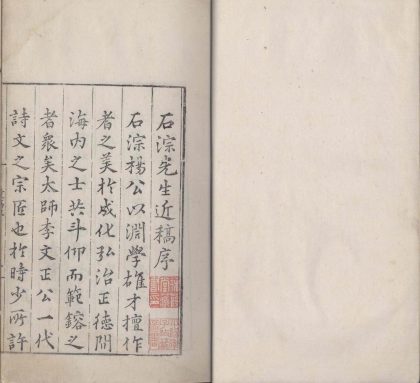 石淙先生近稿序
石淙楊公以淵學雄才擅作
者之美於成化弘治正德間
海内之士共斗仰而範鎔之
者衆矣太師李文正公一代
詩文之宗匠也於時少所許